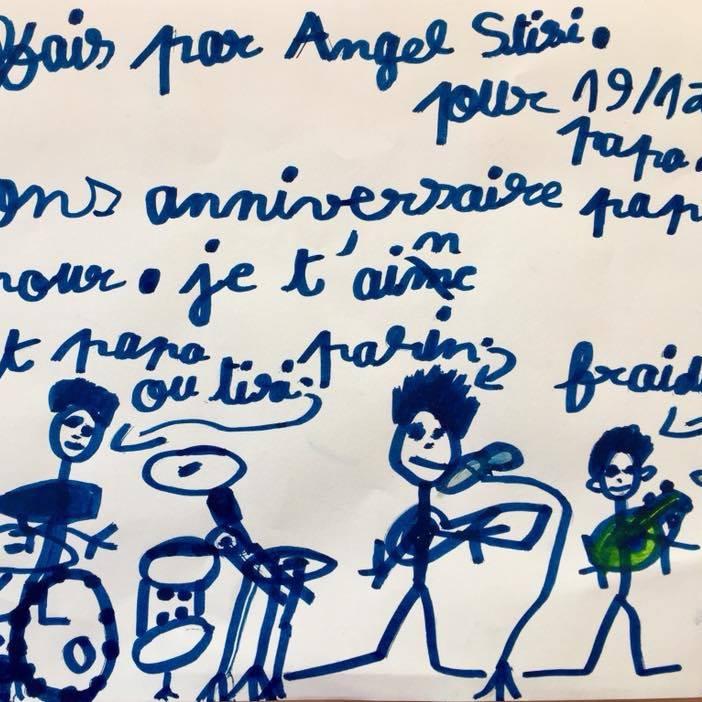 fais par Angel Stisi.
pour 19/12
papa.
ons anniversaire pap
pour. je t'aime
t papa parin:
ou tisi: fraid